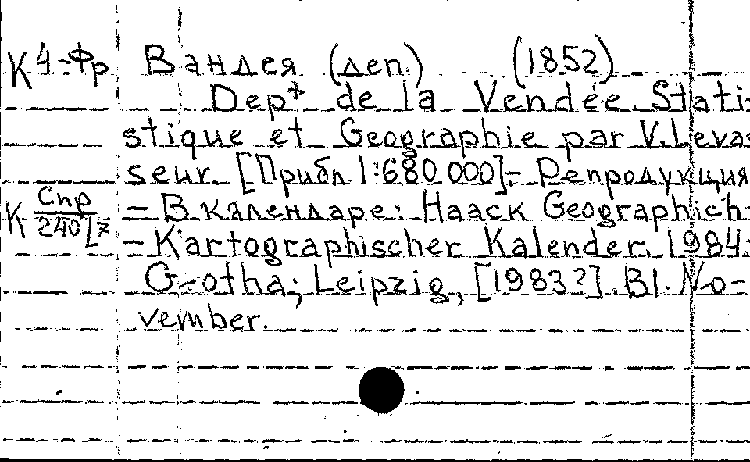 К 4-Фр Вандея (деп.) (1852)
Depᵗ de la Vendée Stati-
stique et Geographie par V. Levas-
seur. [Прибл 1:680 000].- Репродукция
К Спр/240 - В календаре: Haack Geographich-
- Kartographischer Kalender. 1984.
Gotha; Leipzig, [1983?]. Bl. No-
vember.